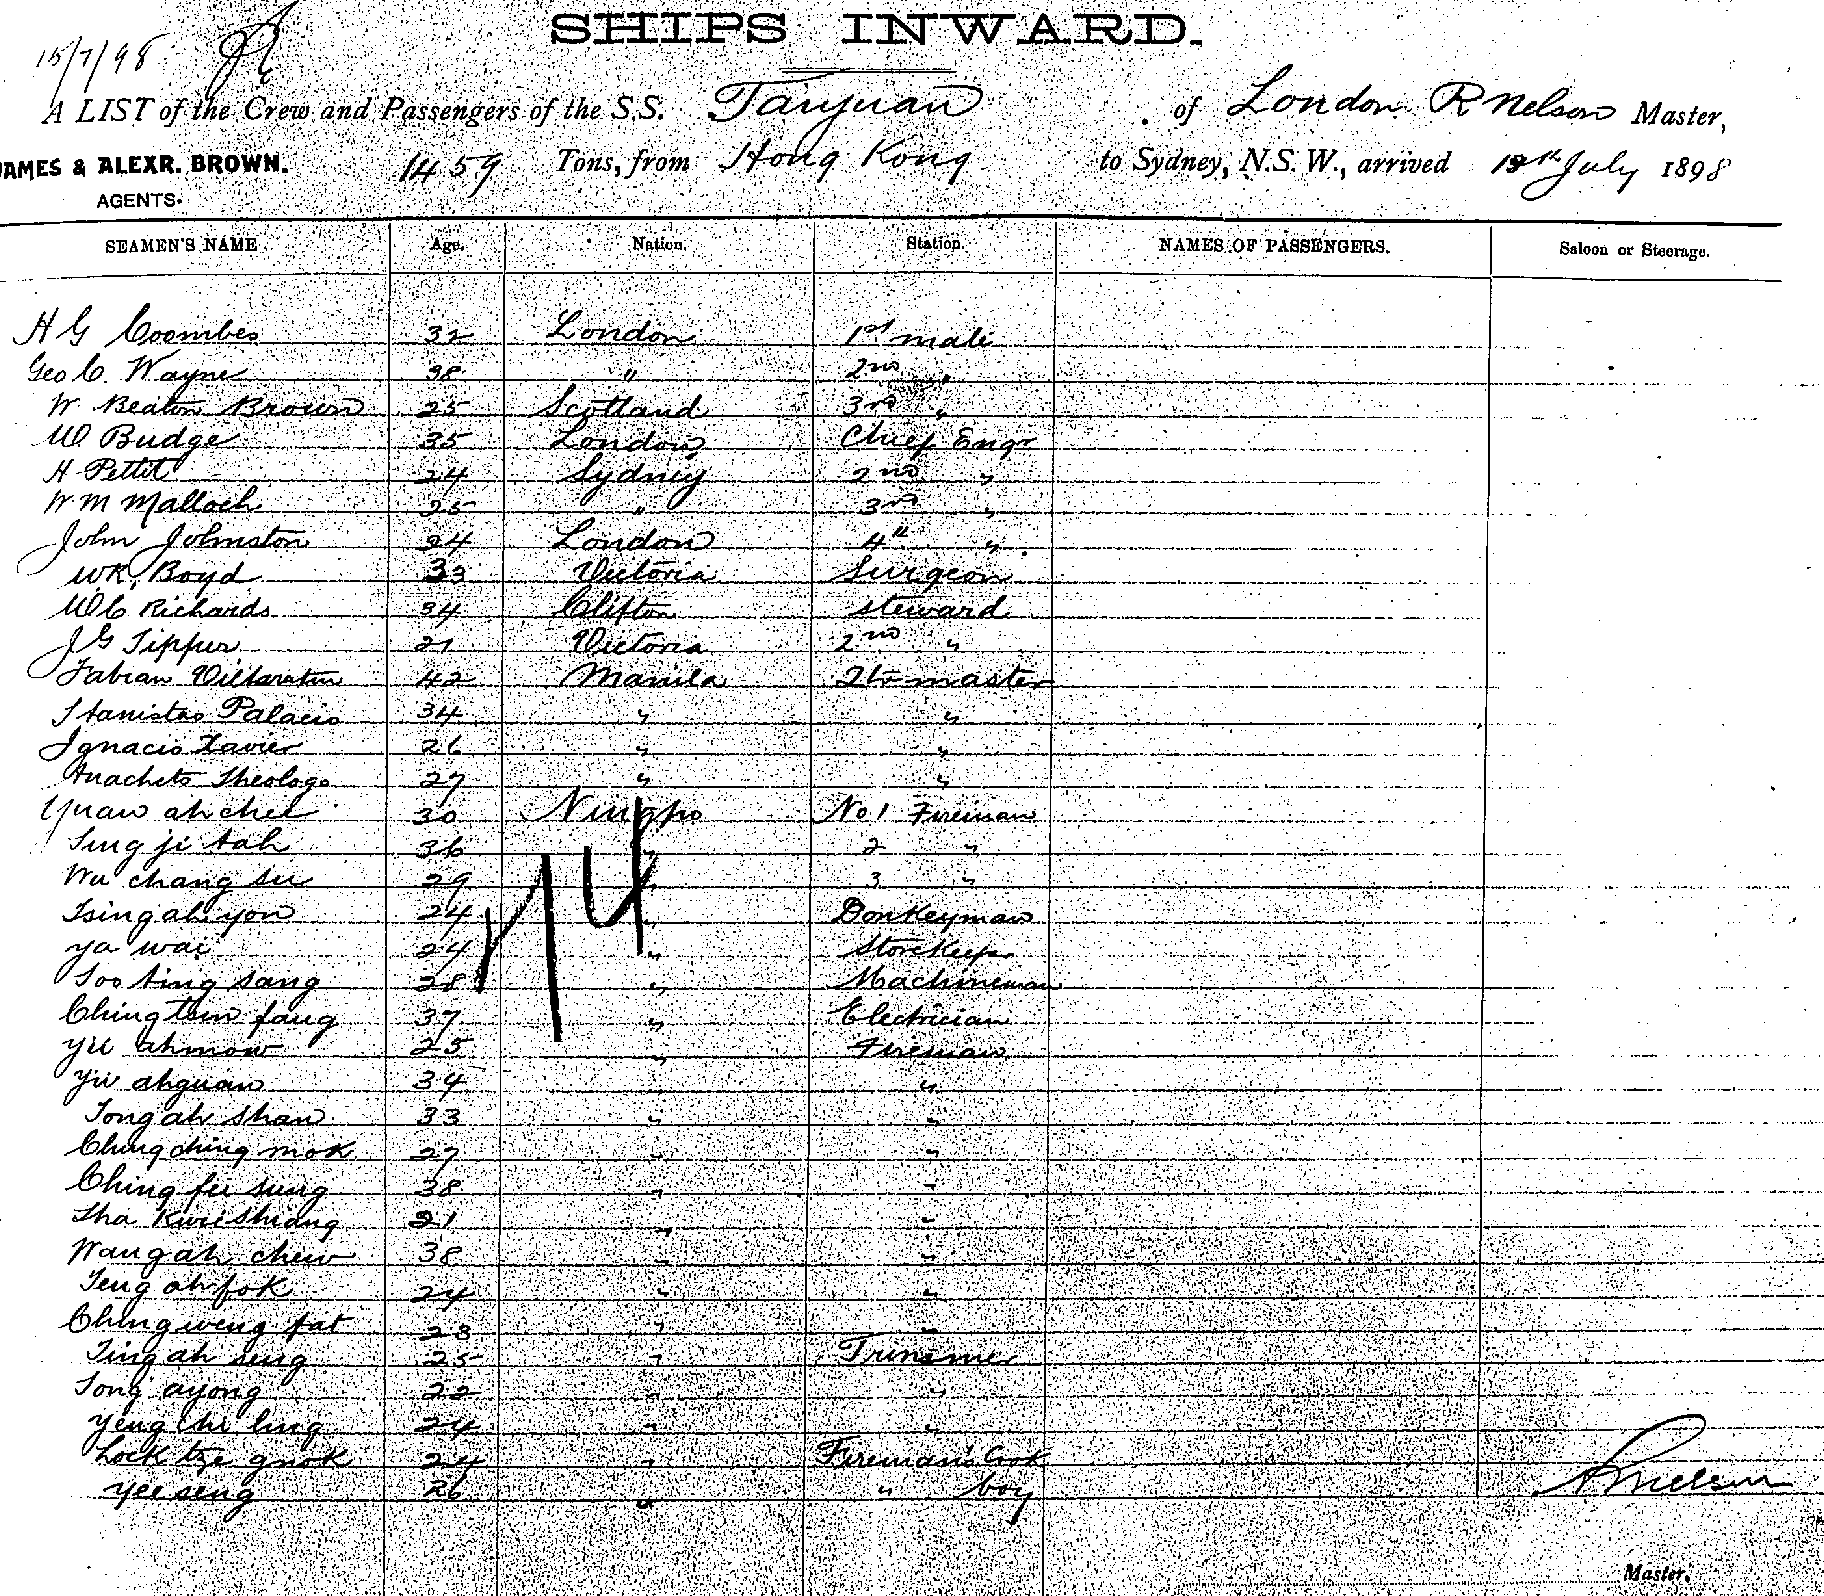 SHIPS INWARD.
15/7/98
A LIST of the Crew and Passengers of the S.S. Taiyuan of London R Nelson Master,
JAMES & ALEXR. BROWN. 1459 Tons, from Hong Kong to Sydney, N.S.W., arrived July 1898
AGENTS.
SEAMEN'S NAME. Age. Nation. Station. NAMES OF PASSENGERS. Saloon or Steerage.
H G Coombes 32 London 1st mate
Geo C. Wayne 38 " 2nd "
W. Beaton Brown 25 Scotland 3rd "
W Budge 35 London Chief Engr
H Pettit 24 Sydney 2nd "
W M Malloch 25 " 3rd "
John Johnston 24 London 4th "
WR. Boyd 33 Victoria Surgeon
W C Richards 34 Clifton Steward
J G Tipper 21 Victoria 2nd "
Fabian 42 Manila Qtr master
Stanislas Palacio 34 " "
Ignacio Xavier 26 " "
Anacheto Theologo 27 " "
Yuan ah chee 30 Ningpo No 1 Fireman
Sing ji tah 36 " 2 "
Wu chang su 29 " 3 "
Tsing ah yon 24 " Donkeyman
Ya wai 24 " StoreKeep
Soo ting sang 28 " Machineman
Ching tem fang 37 " Electrician
Yu ahmow 25 " Fireman
Yu ahguan 34 " "
Tong ah shan 33 " "
Ching ching mok 27 " "
Ching fu sung 38 " "
Sha Kwei Shiang 21 " "
Wang ah chew 38 " "
Teng ah fok 24 " "
Ching weng fat 23 " "
Ting ah seng 25 " Trimmer
Tong ayong 22 " "
Yeng chi ling 24 " "
Lock tze gnok 24 " Fireman's Cook
Yee seng 26 " " boy
74
R Nelson
Master.